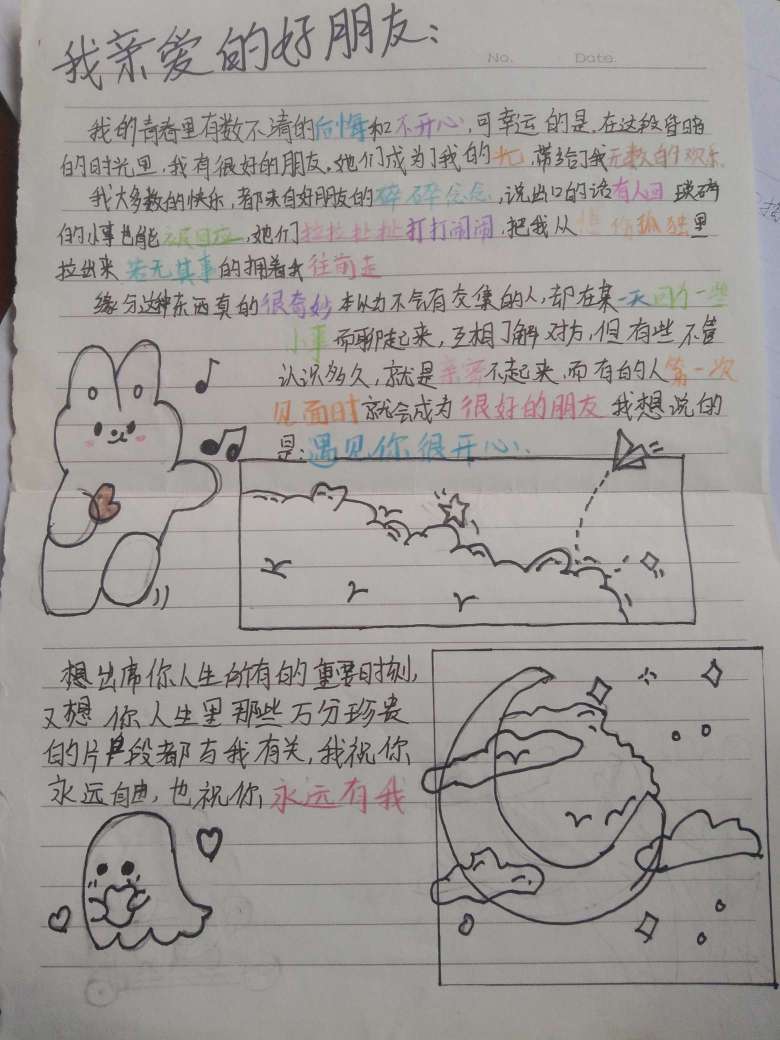 我亲爱的好朋友：
No. Date.
我的青春里有数不清的后悔和不开心，可幸运的是，在这段昏暗
的时光里，我有很好的朋友，她们成为了我的光，带给了我无数的欢乐
我大多数的快乐，都来自好朋友的碎碎念念，说出口的话有人回 琐碎
的小事也能被回应，她们拉拉扯扯打打闹闹，把我从悲伤孤独里
拉出来 若无其事的拥着我往前走
缘分这种东西真的很奇妙 本以为不会有交集的人，却在某一天因为一些
小事而聊起来，互相了解对方，但有些不管
认识多久，就是亲密不起来，而有的人第一次
见面时就会成为很好的朋友 我想说的
是：遇见你很开心
想出席你人生所有的重要时刻，
又想你人生里那些万分珍贵
的片段都与我有关，我祝你
永远自由，也祝你永远有我